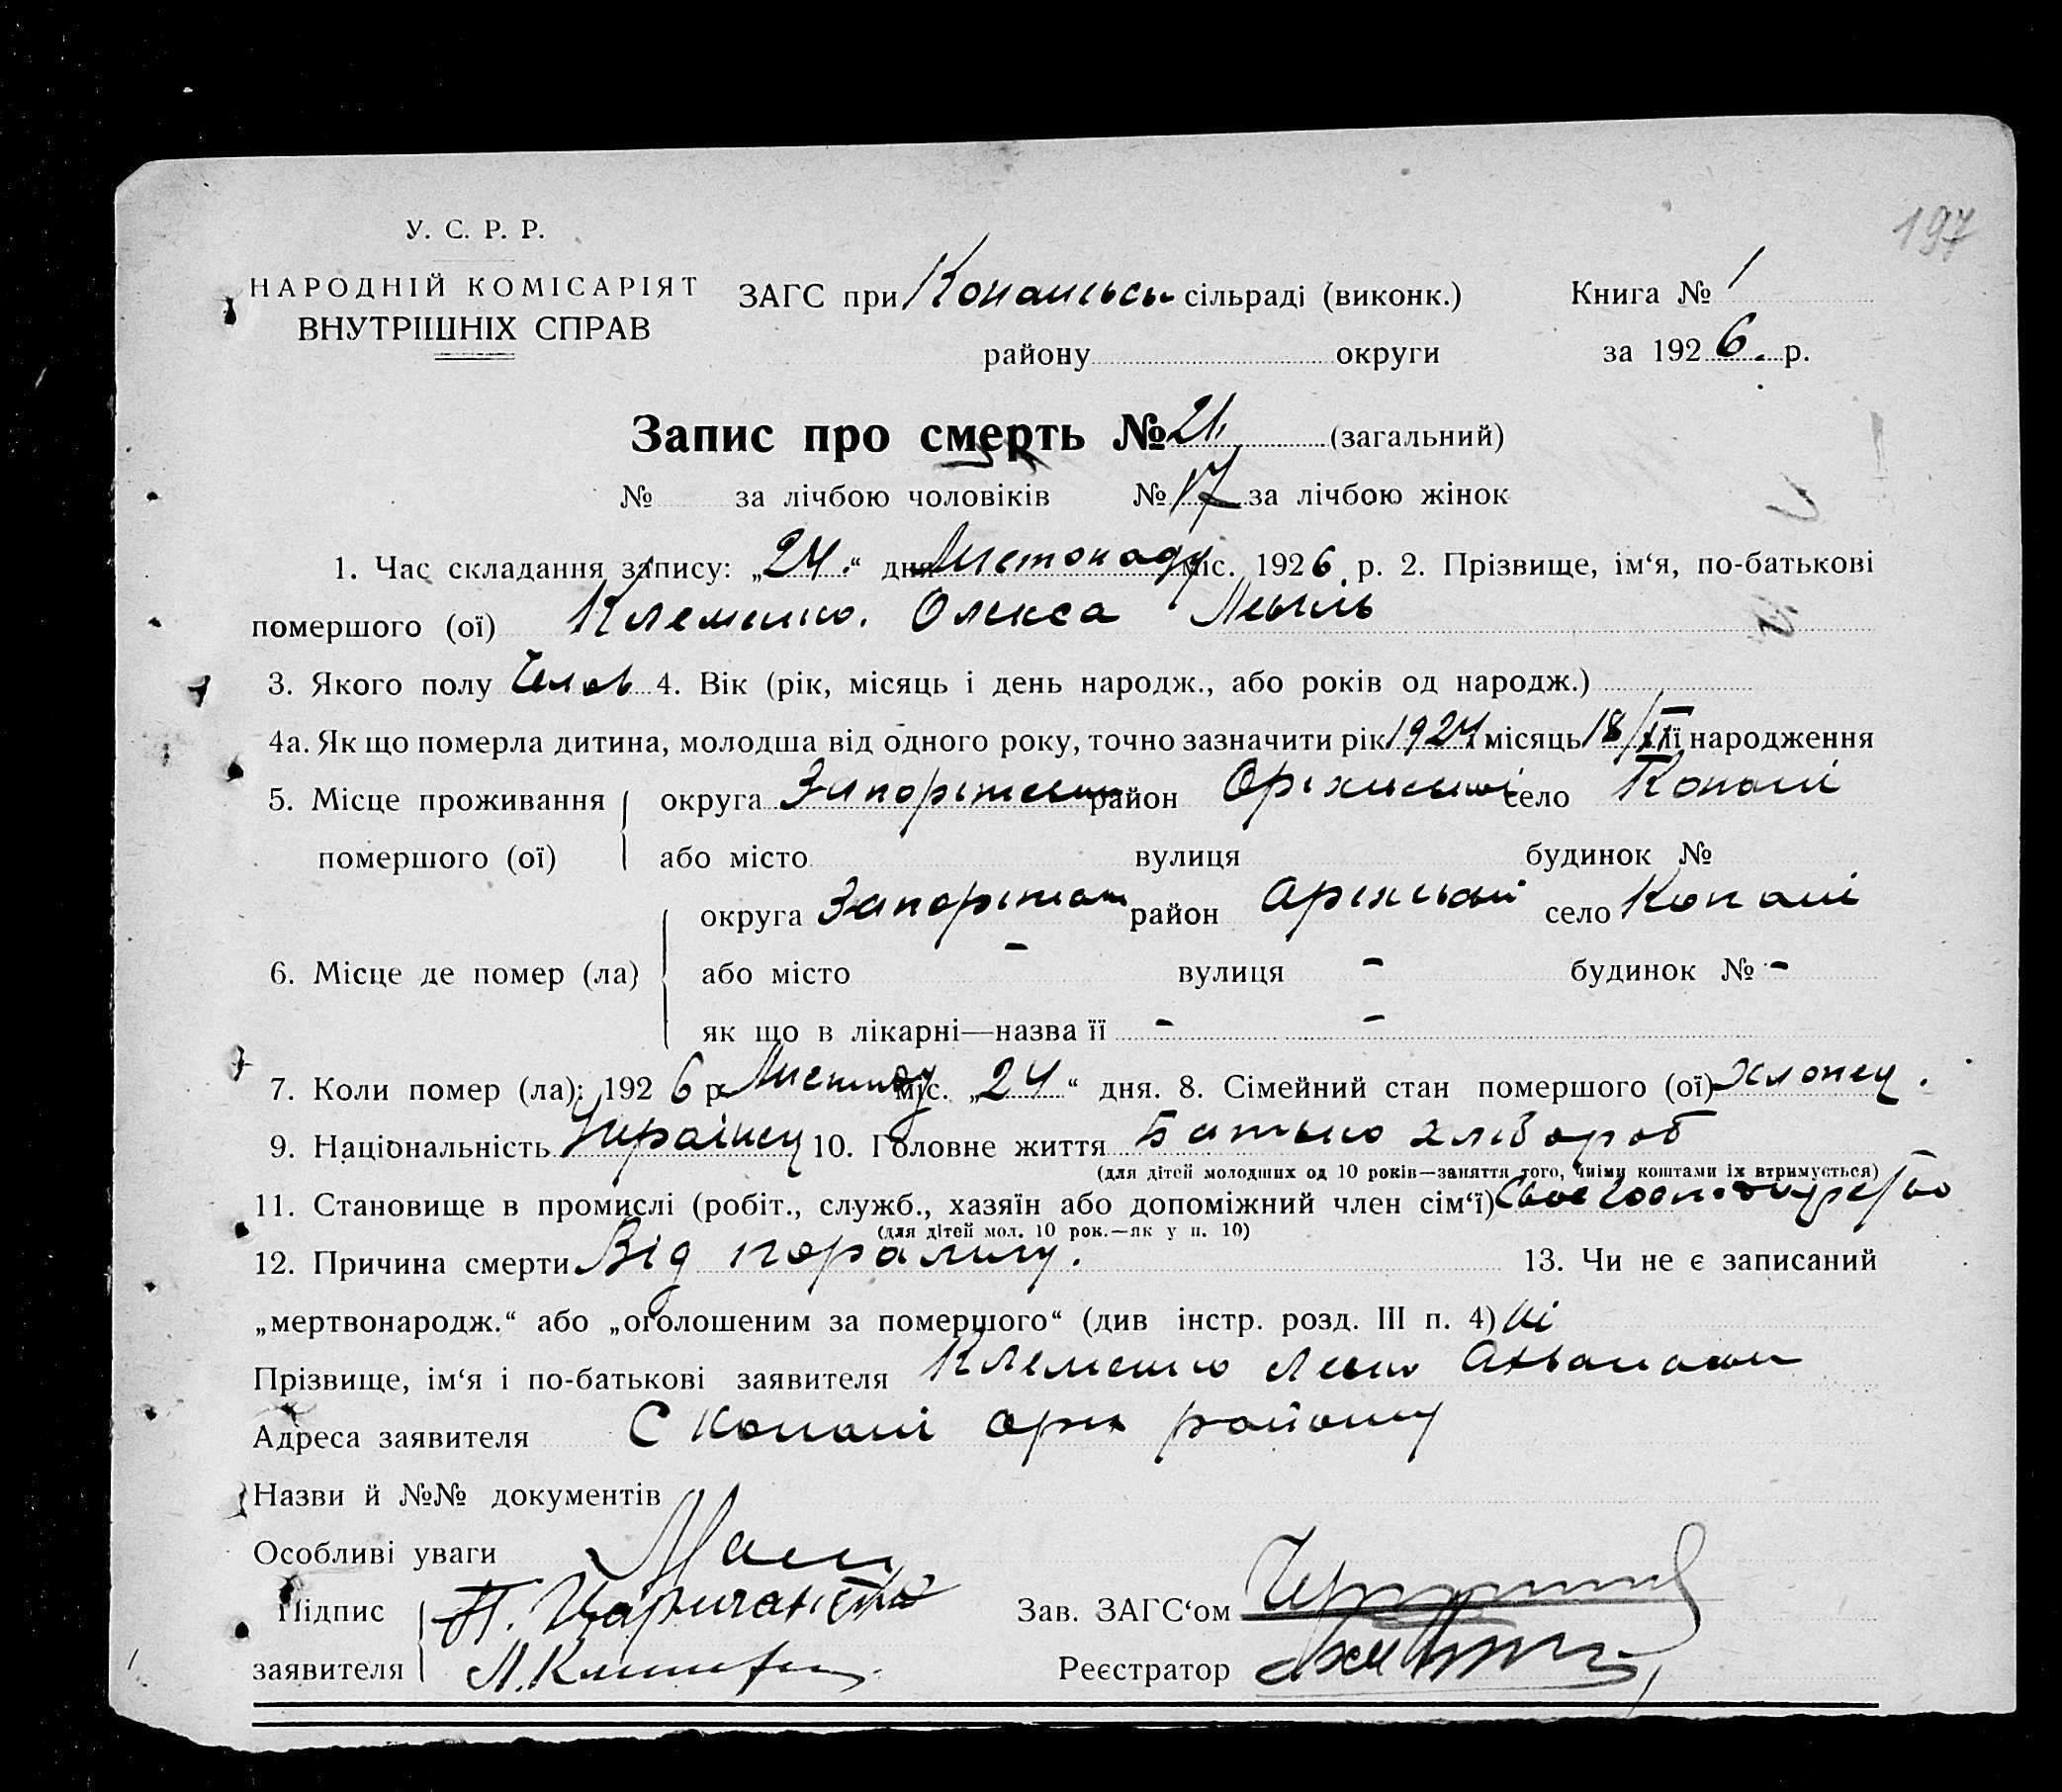 197
У. С. Р. Р.
НАРОДНІЙ КОМІСАРІЯТ
ВНУТРІШНІХ СПРАВ
ЗАГС при сільраді (виконк.)
Книга № 1
району округи
за 1926. р.
Запис про смерть № 21, (загальний)
№ за лічбою чоловіків № 17 за лічбою жінок
1. Час складання запису: „24.“ дня Листопаду міс. 1926 р. 2. Прізвище, ім‘я, по-батькові
помершого (ої) Клеменко. Олекса
3. Якого полу Челов 4. Вік (рік, місяць і день народж., або років од народж.)
4а. Як що померла дитина, молодша від одного року, точно зазначити рік 1924 місяць 18/III її народження
5. Місце проживання
помершого (ої)
округа район село Копані
або місто вулиця будинок №
6. Місце де помер (ла)
округа район село Копані
або місто - вулиця - будинок № -
як що в лікарні—назва її - -
7. Коли помер (ла): 1926 р. міс. „24“ дня. 8. Сімейний стан помершого (ої) хлопец.
9. Національність Украінец 10. Головне життя Батько хлібороб
(для дітей молодших од 10 років—заняття того, чиїми коштами їх втримується)
11. Становище в промислі (робіт., служб., хазяїн або допоміжний член сім‘ї) Свое
(для дітей мол. 10 рок.—як у п. 10)
12. Причина смерти Від поралічу. 13. Чи не є записаний
„мертвонародж.“ або „оголошеним за помершого“ (див інстр. розд. III п. 4) ні
Прізвище, ім‘я і по-батькові заявителя Клеменко
Адреса заявителя С Копані Орх району
Назви й №№ документів
Особливі уваги
Підпис
заявителя
Зав. ЗАГС‘ом
Реєстратор